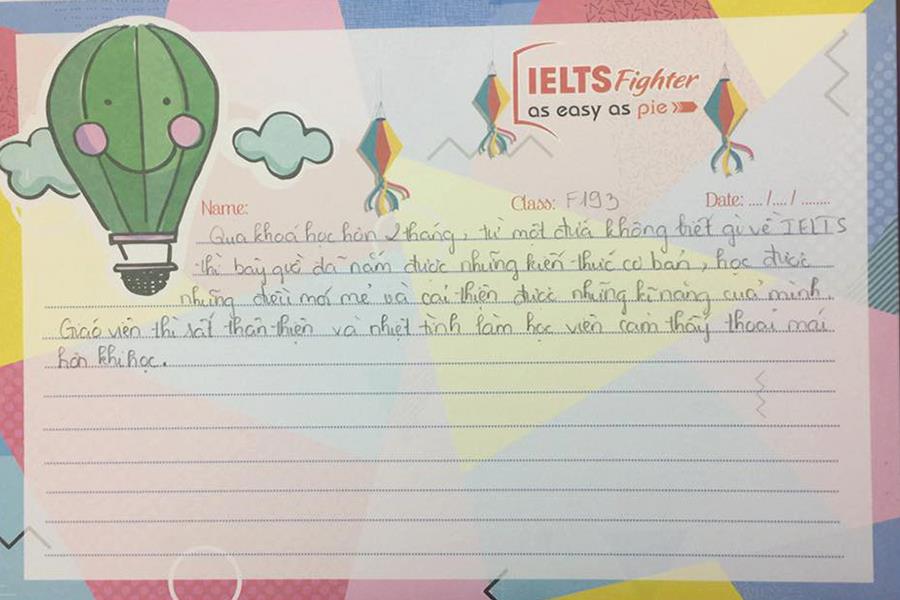 IELTS Fighter
as easy as pie
Name:
Class: F193
Date: .... /.... / ........
Qua khoá học hơn 2 tháng, từ một đứa không biết gì về IELTS
thì bây giờ đã nắm được những kiến thức cơ bản, học được
những điều mới mẻ và cải thiện được những kĩ năng của mình.
Giáo viên thì rất thân thiện và nhiệt tình làm học viên cảm thấy thoải mái
hơn khi học.